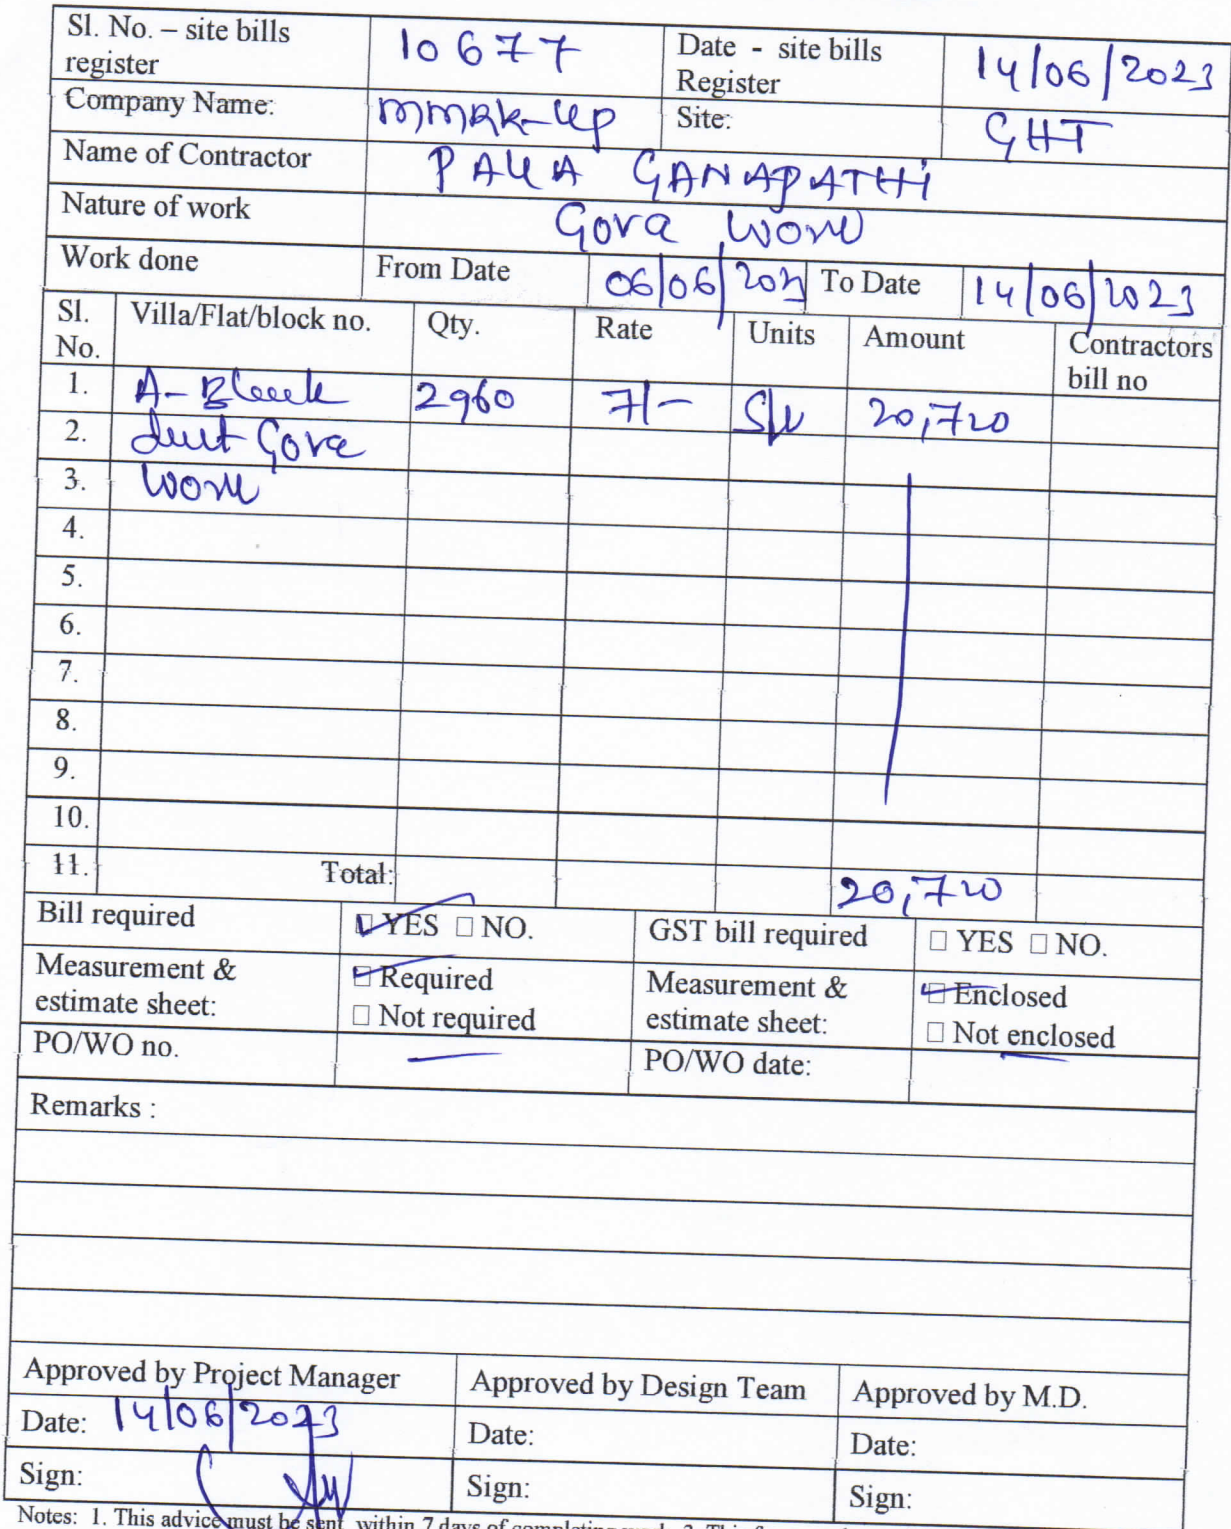 Sl. No. – site bills register 10677 Date - site bills Register 14/06/2023
Company Name: MMRK-UP Site: GHT
Name of Contractor PALLA GANAPATHI
Nature of work Gova work
Work done From Date 06/06/2023 To Date 14/06/2023
Sl. No. Villa/Flat/block no. Qty. Rate Units Amount Contractors bill no
1. A-Block 2960 7/- 20,720
2. duct Gova
3. work
4.
5.
6.
7.
8.
9.
10.
11. Total: 20,720
Bill required YES NO. GST bill required YES NO.
Measurement & estimate sheet: Required Not required Measurement & estimate sheet: Enclosed Not enclosed
PO/WO no. PO/WO date:
Remarks :
Approved by Project Manager Approved by Design Team Approved by M.D.
Date: 14/06/2023 Date: Date:
Sign: Sign: Sign:
Notes: 1. This advice must be sent within 7 days of completing work. 2. This